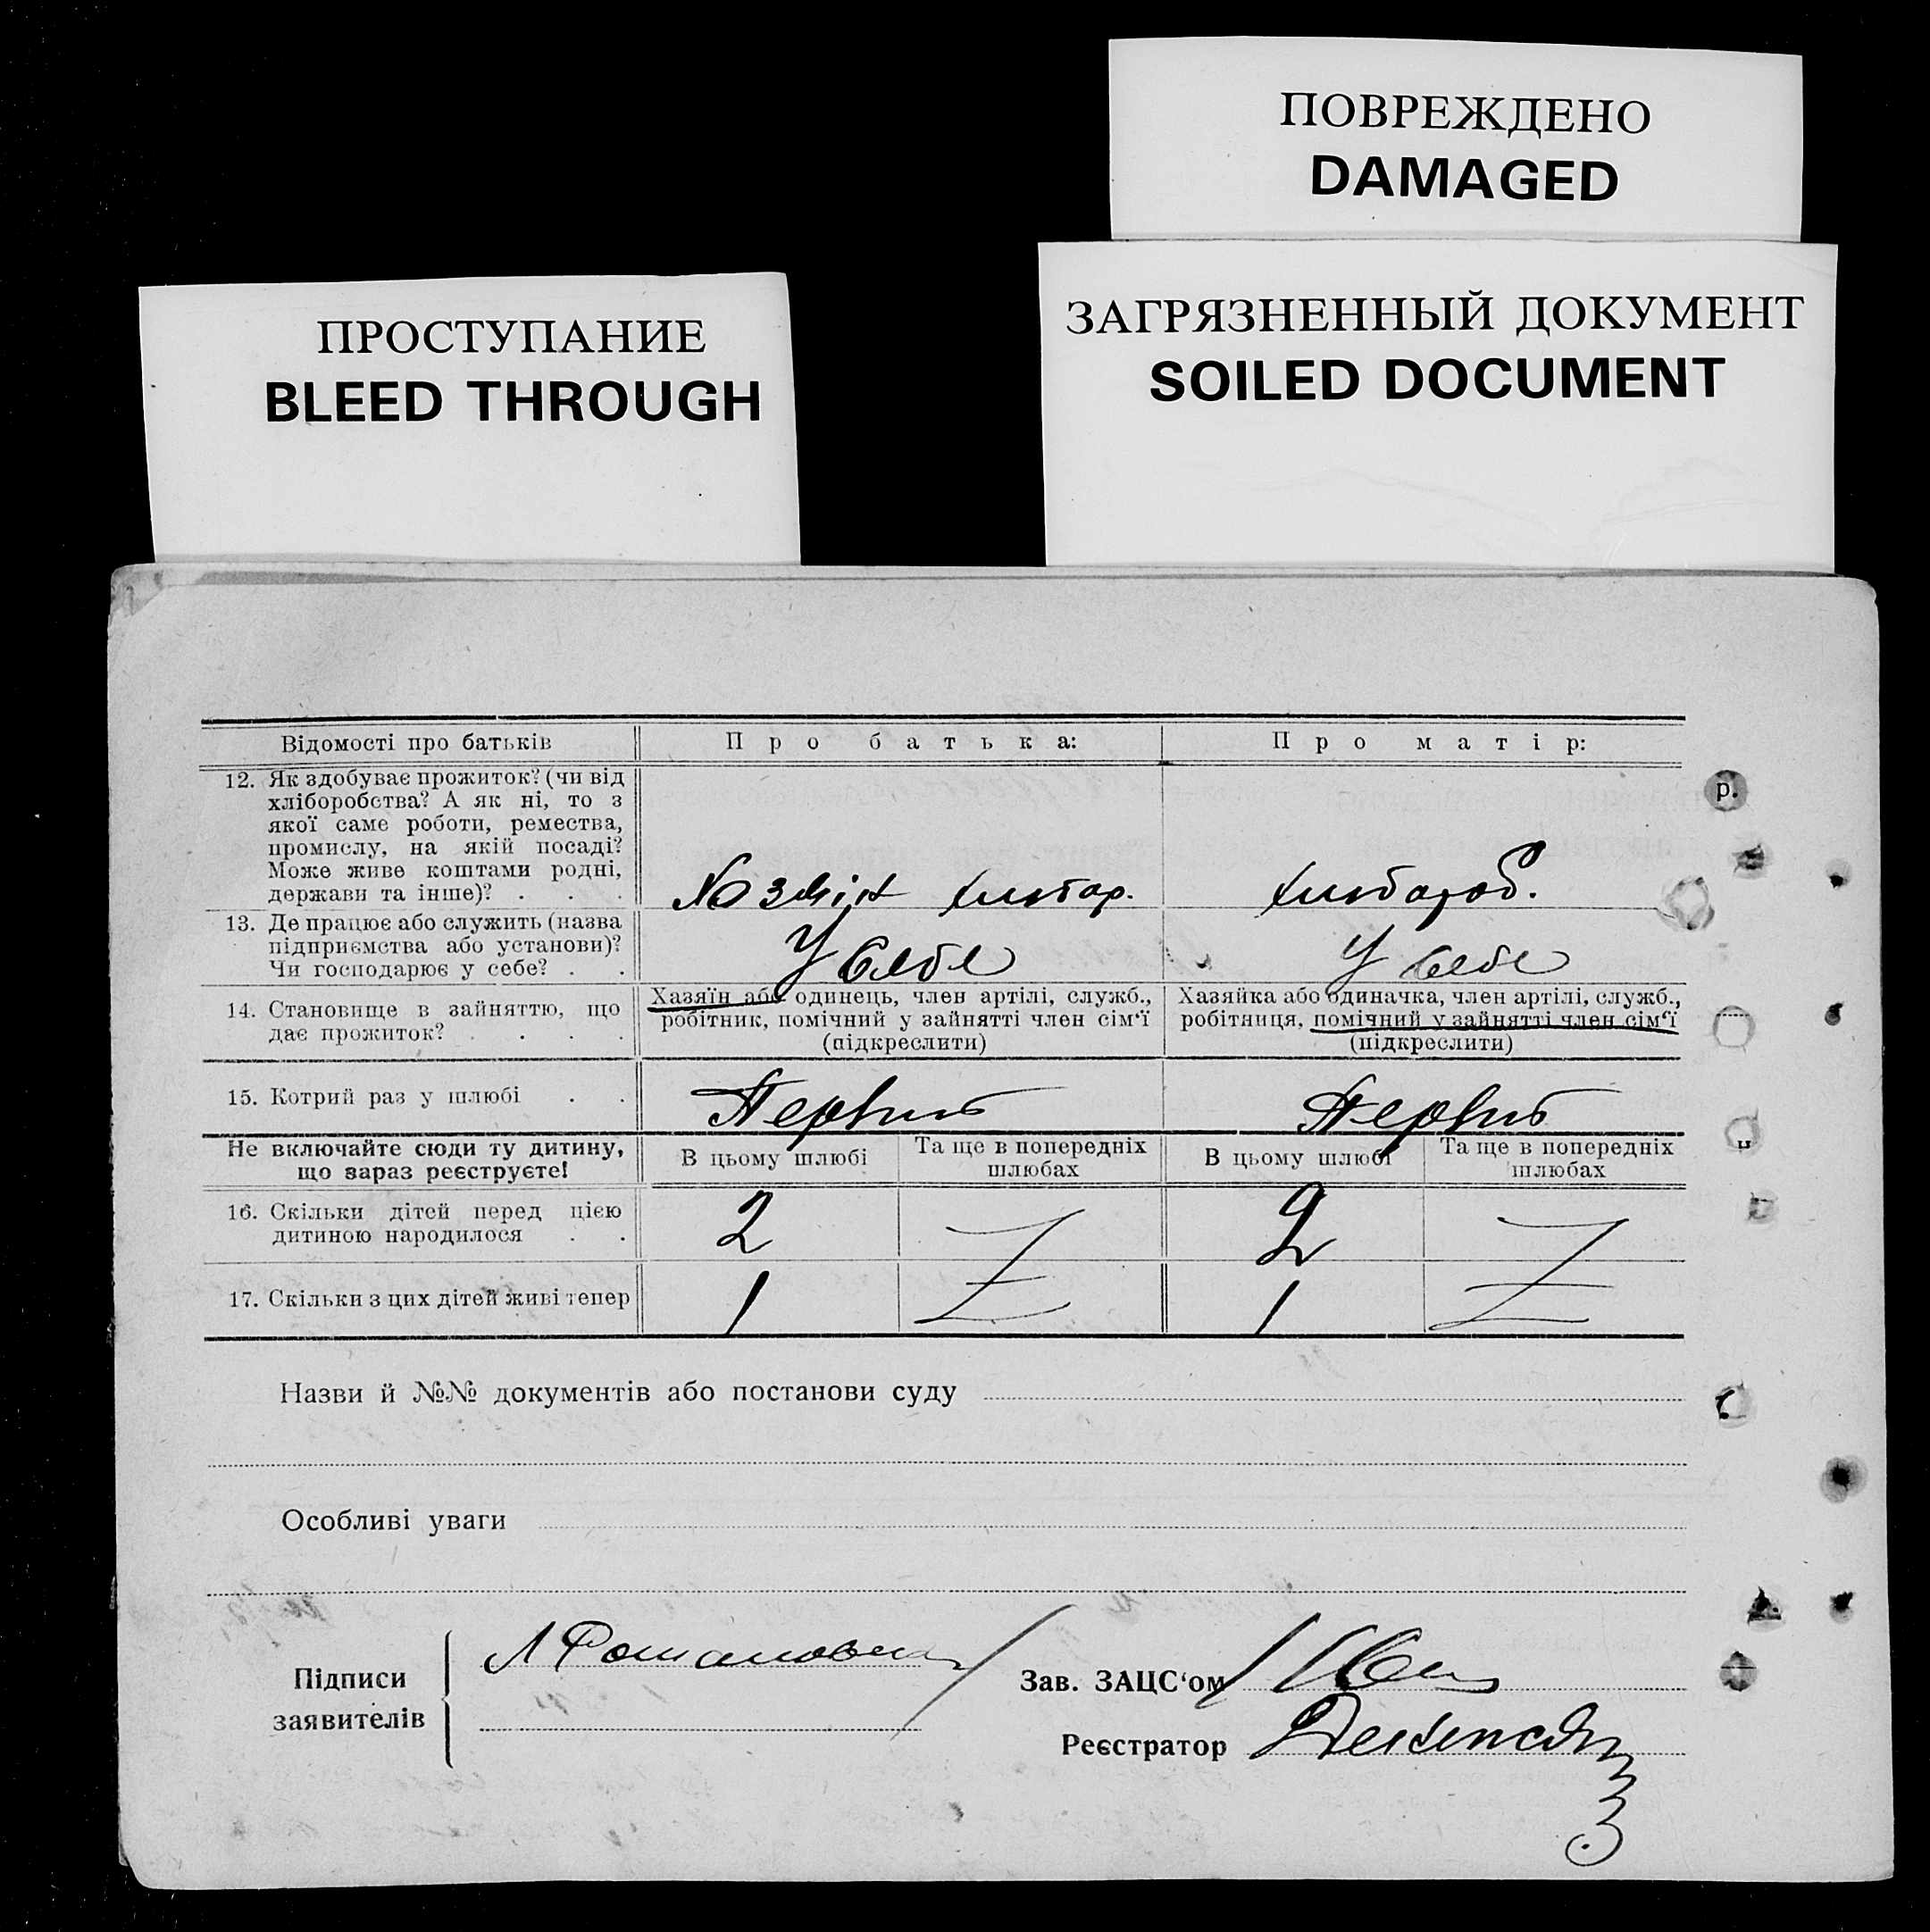 ПОВРЕЖДЕНО
DAMAGED
ПРОСТУПАНИЕ
BLEED THROUGH
ЗАГРЯЗНЕННЫЙ ДОКУМЕНТ
SOILED DOCUMENT
Відомості про батьків
Про батька:
Про матір:
12. Як здобуває прожиток? (чи від
хліборобства? А як ні, то з
якої саме роботи, ремества,
промислу, на якій посаді?
Може живе коштами родні,
держави та інше)? . . .
хлібороб.
13. Де працює або служить (назва
підприємства або установи)?
Чи господарює у себе? . .
У себе
У себе
14. Становище в зайняттю, що
дає прожиток? . . . .
Хазяїн або одинець, член артілі, служб.,
робітник, помічний у зайнятті член сім‘ї
(підкреслити)
Хазяйка або одиначка, член артілі, служб.,
робітниця, помічний у зайнятті член сім‘ї
(підкреслити)
15. Котрий раз у шлюбі . .
Не включайте сюди ту дитину,
що зараз реєструєте!
В цьому шлюбі
Та ще в попередніх
шлюбах
В цьому шлюбі
Та ще в попередніх
шлюбах
16. Скільки дітей перед цією
дитиною народилося . .
2
2
17. Скільки з цих дітей живі тепер
1
1
р.
н
Назви й №№ документів або постанови суду
Особливі уваги
Підписи
заявителів
Зав. ЗАЦС‘ом
Реєстратор